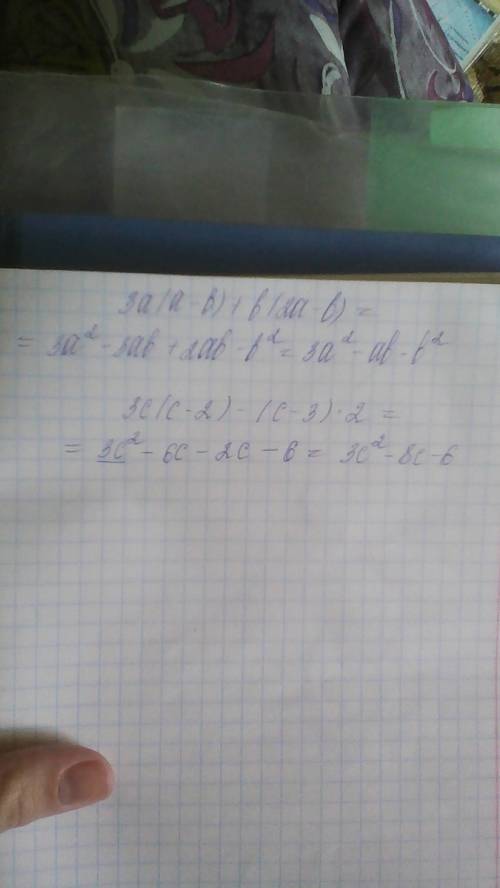 3a(a-b)+b(2a-b)=
= 3a² - 3ab + 2ab - b² = 3a² - ab - b²
3c(c-2) - (c-3)·2 =
= 3c² - 6c - 2c - 6 = 3c² - 8c - 6